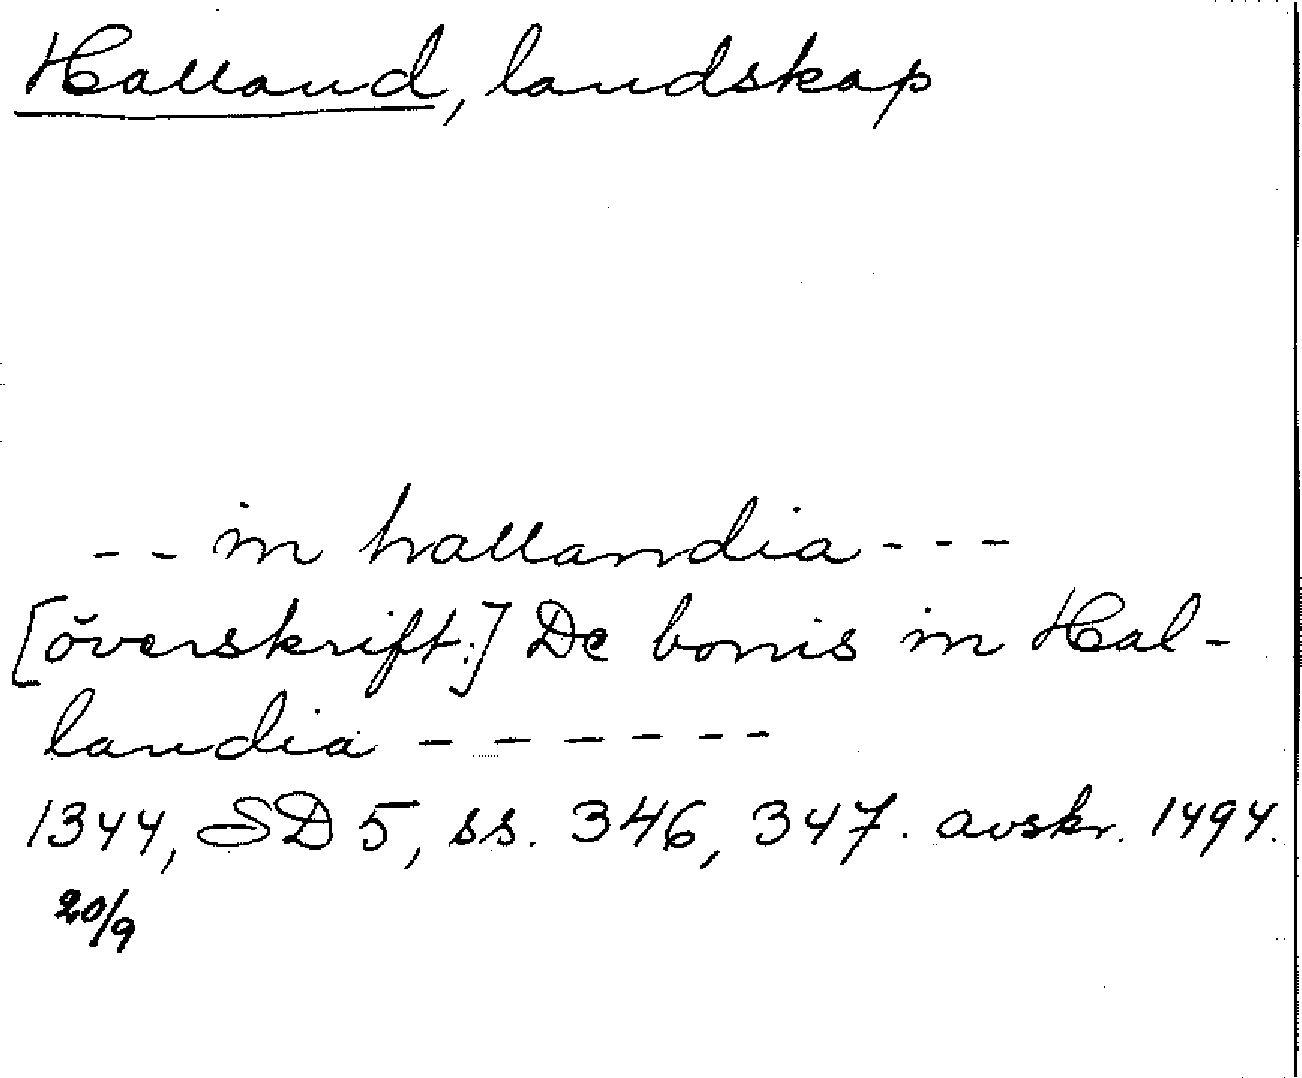 Halland, landskap
-- in hallandia ---
[överskrift:] De bonis in Hal-
landia ------
1344, SD 5, ss. 346, 347. avskr. 1494.
20/9